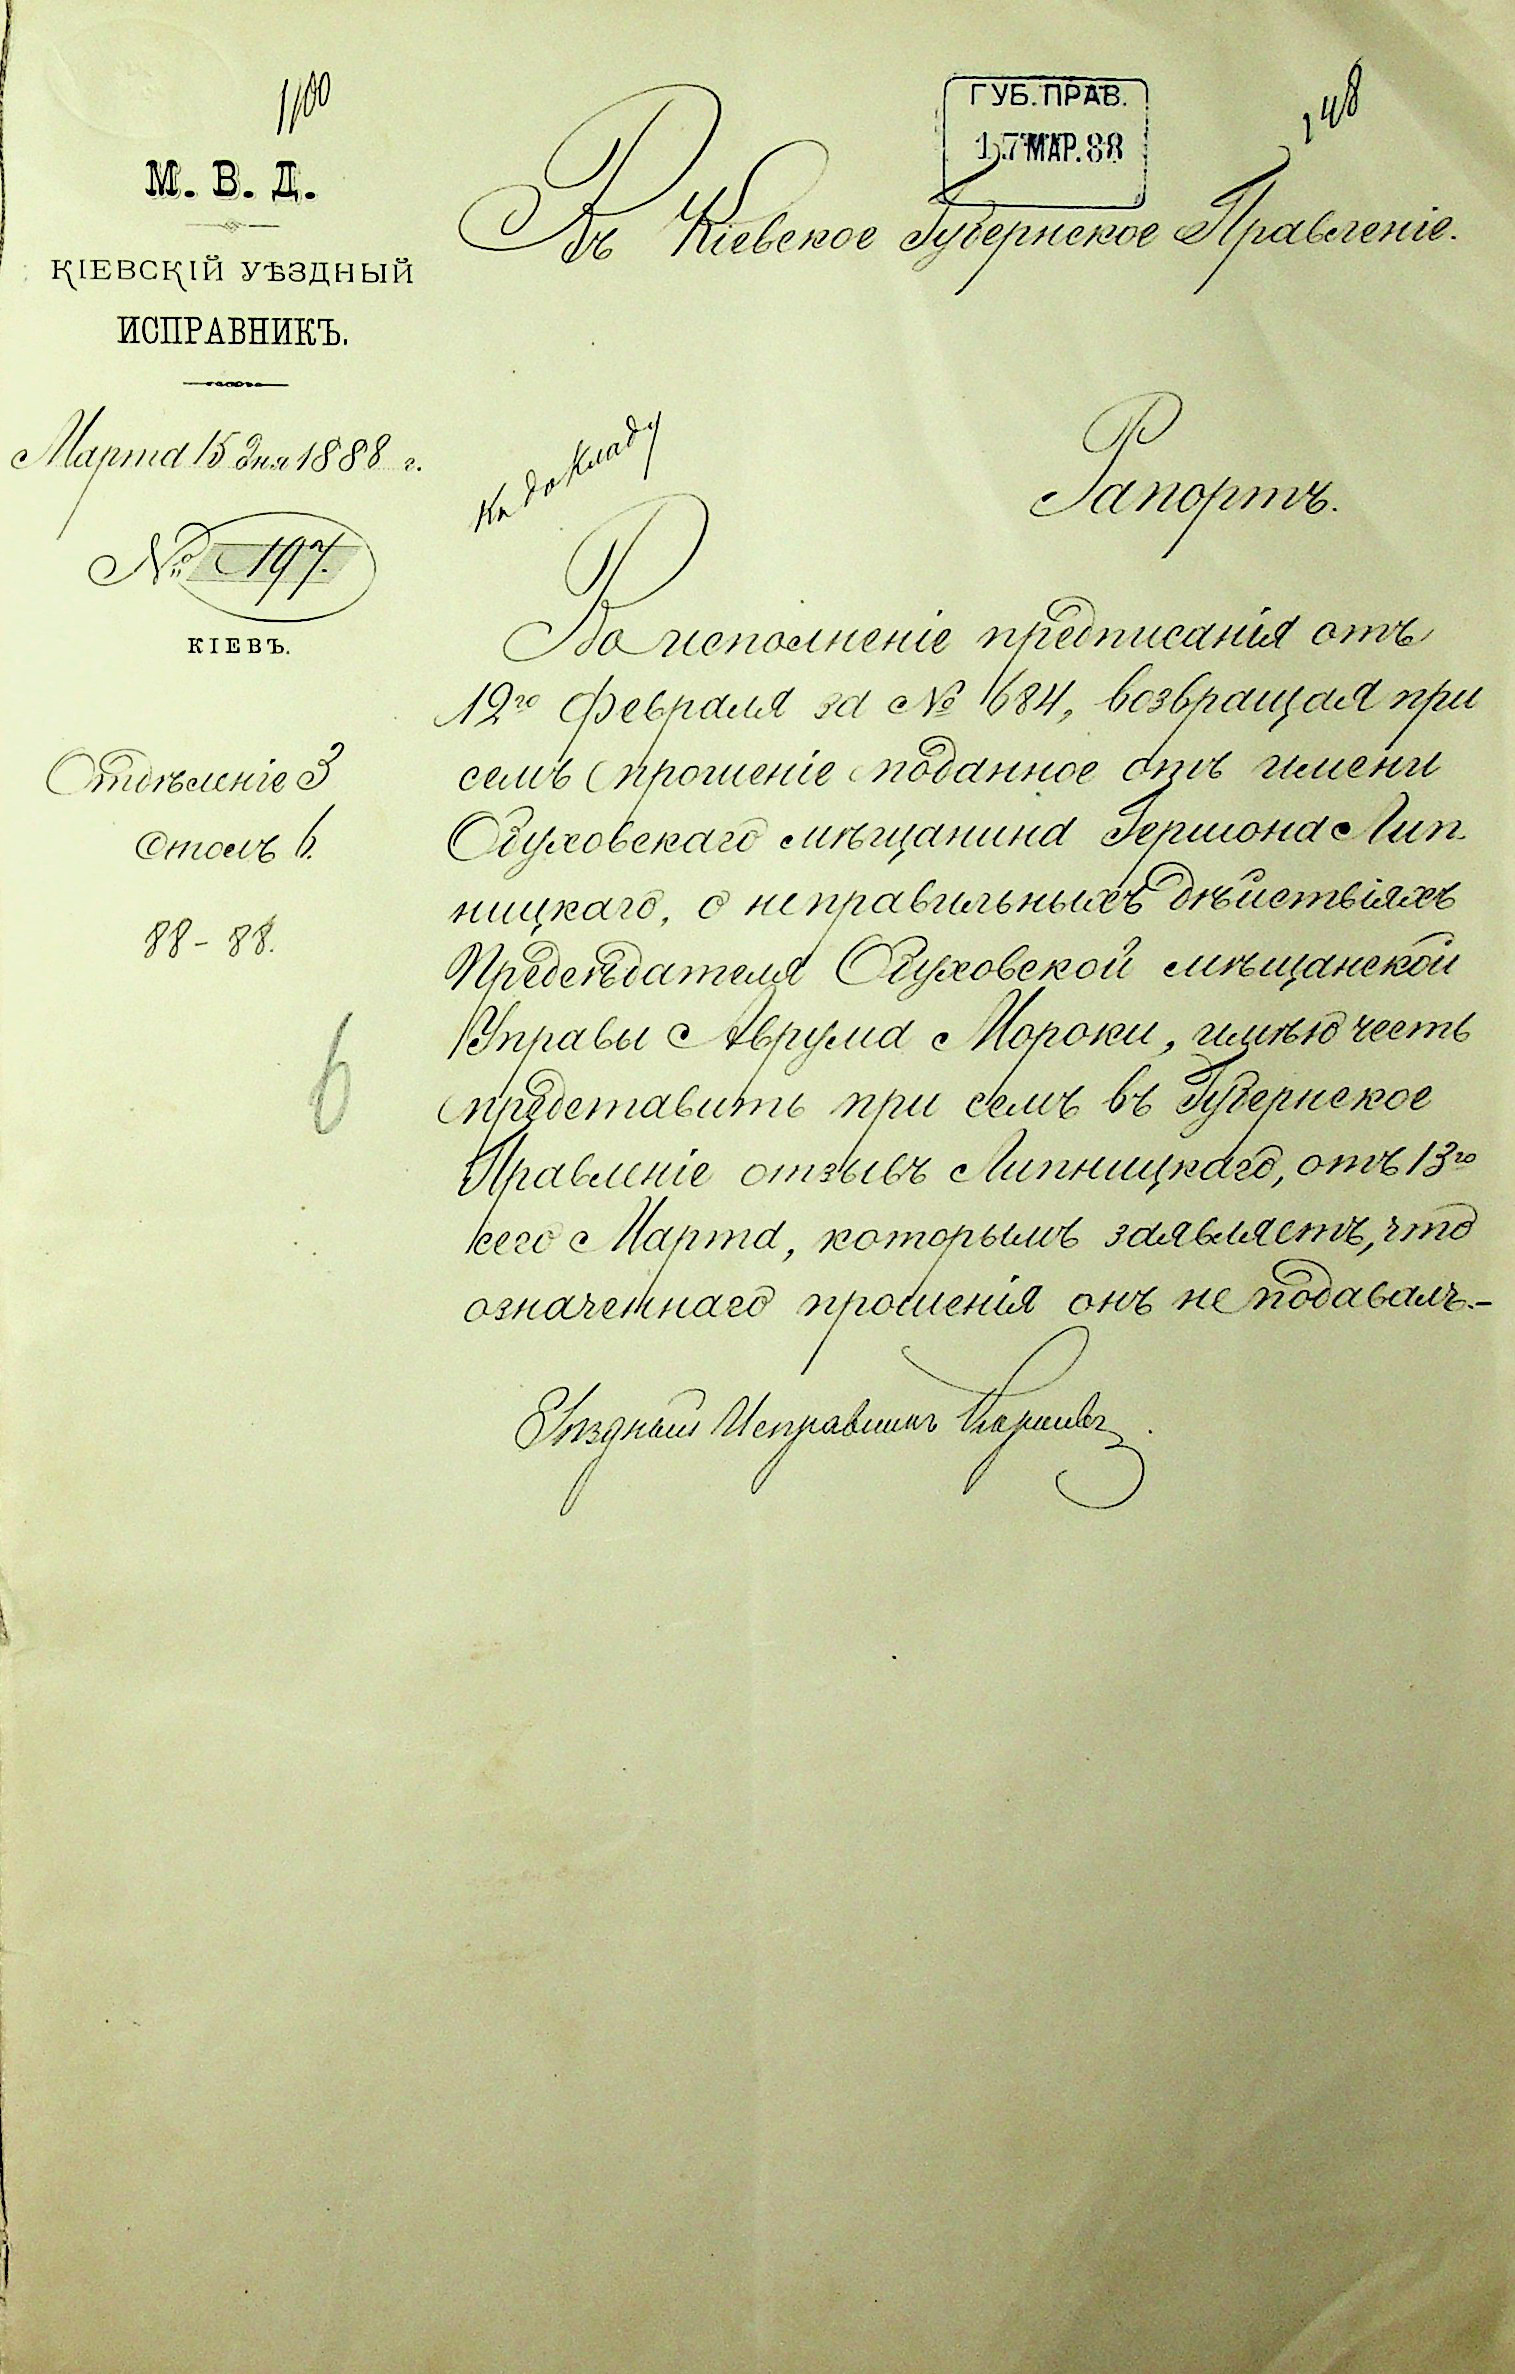 1100
М. В. Д.
КІЕВСКІЙ УѢЗДНЫЙ
ИСПРАВНИКЪ.
Марта 15 дня 1888 г.
№ 197.
КІЕВЪ.
Отдѣленіе 3
Столъ 6.
88-88.
6
ГУБ. ПРАВ.
17 МАР. 88
148
Въ Кіевское Губернское Правленіе.
Къ докладу
Рапортъ.
Во исполненіе предписанія отъ
12го Февраля за № 684, возвращая при
семъ прошеніе поданное отъ имени
Обуховскаго мѣщанина Гершона Лип
ницкаго, о неправильныхъ дѣйствіяхъ
Предсѣдателя Обуховской мѣщанской
Управы Аврума Мороки, имѣю честь
представить при семъ въ Губернское
Правленіе отзывъ Липницкаго, отъ 13го
сего Марта, которымъ заявляетъ, что
означеннаго прошенія онъ не подавалъ.-
Уѣздный Исправникъ